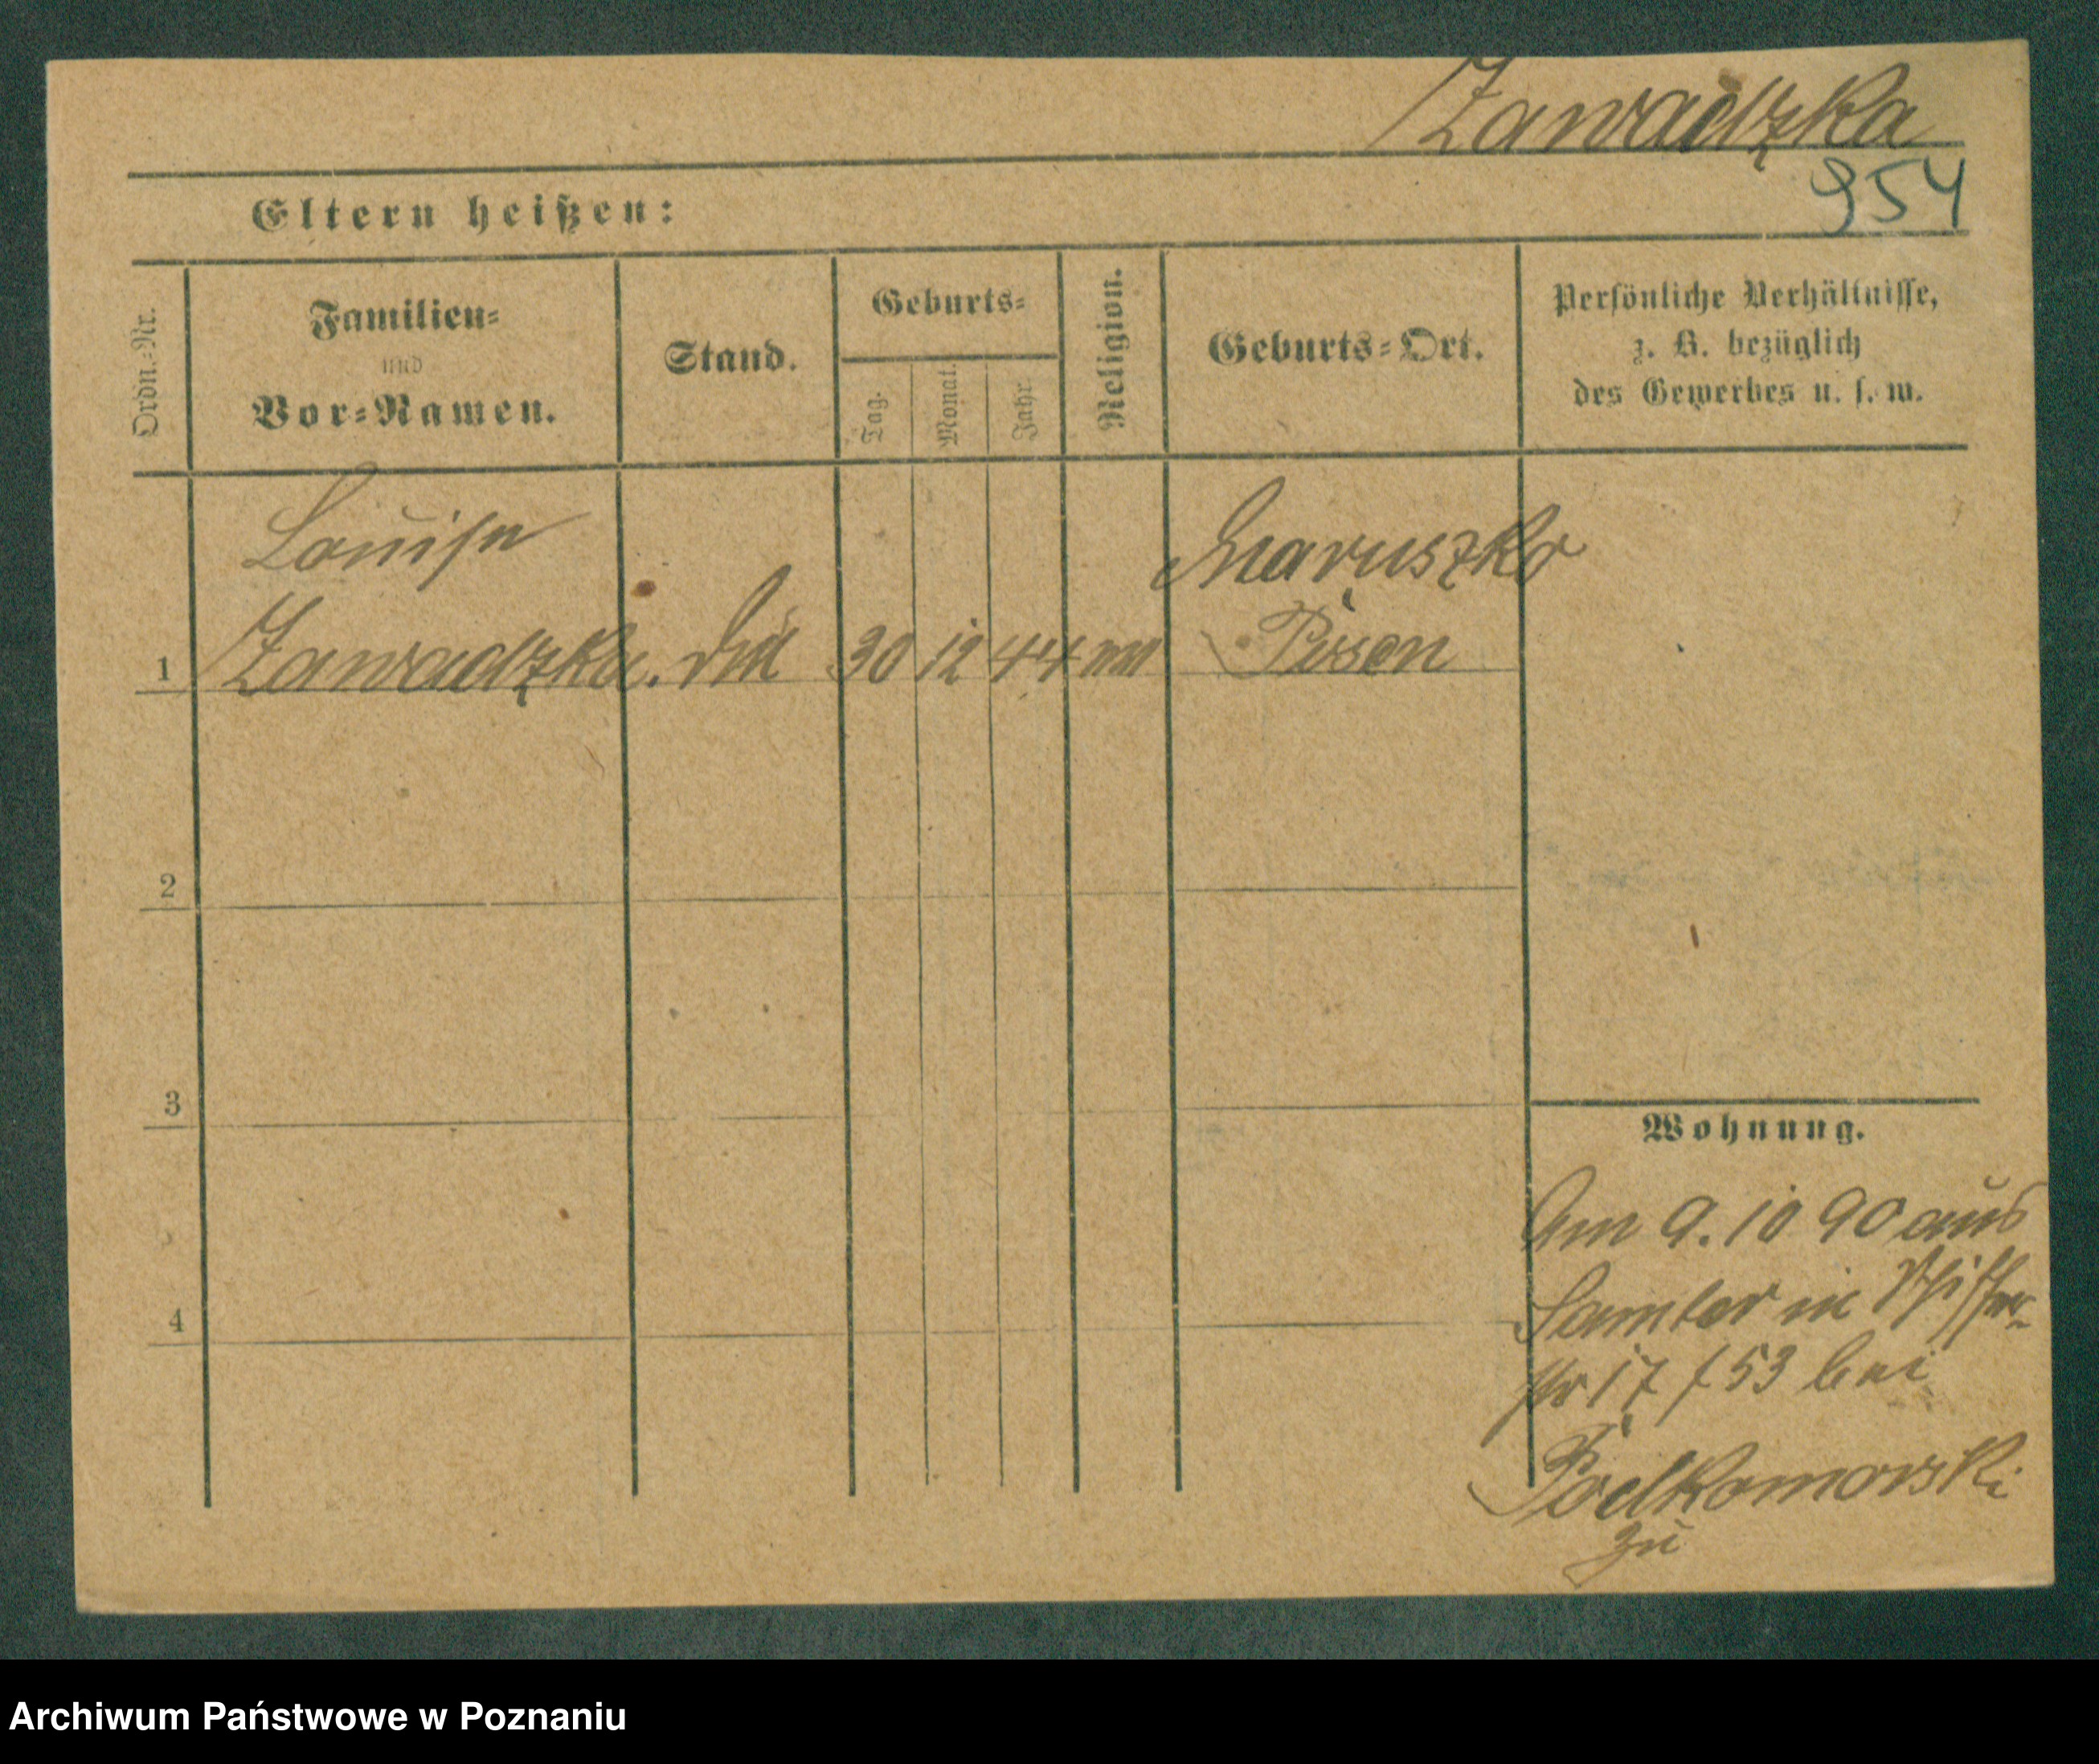 Zawadzka
954
Eltern heißen:
Ordn.-Nr.
Familien-
und
Vor-Namen.
Stand.
Geburts-
Tag.
Monat.
Jahr.
Religion.
Geburts-Ort.
Persönliche Verhältnisse,
z. B. bezüglich
des Gewerbes u. s. w.
Louise
Maruszko
1 Zawadzka. 30 12 44
2
3
4
Wohnung.
Am 9. 10 90 aus
Samter in
17 / 53 bei
Podkomorski
zu
Archiwum Państwowe w Poznaniu